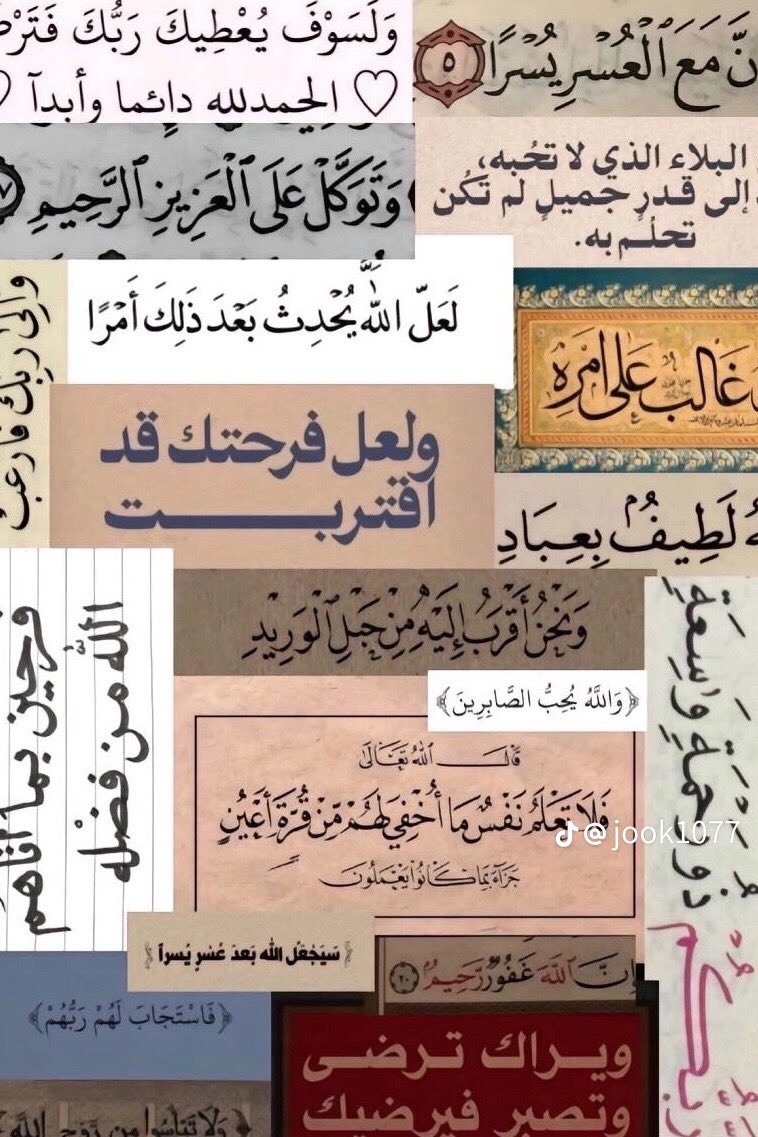 وَلَسَوْفَ يُعْطِيكَ رَبُّكَ فَتَرْضَ
الحمدلله دائما وأبدآ
نَّ مَعَ ٱلْعُسْرِ يُسْرًا ٥
وَتَوَكَّلْ عَلَى ٱلْعَزِيزِ ٱلرَّحِيمِ
البلاء الذي لا تحُبه،
إلى قدرٍ جميلٍ لم تَكُن
تحلُم به.
لَعَلّ اللَّهَ يُحْدِثُ بَعْدَ ذَلِكَ أَمْرًا
غالب على امره
وإلى ربك فارغب
ولعل فرحتك قد
اقتربت
لَطِيفُۢ بِعِبَادِ
وَنَحْنُ أَقْرَبُ إِلَيْهِ مِنْ حَبْلِ ٱلْوَرِيدِ
﴿وَاللَّهُ يُحِبُّ الصَّابِرِينَ﴾
فرحين بما آتاهم
اللّه من فضله
قال الله تعالى
فَلَا تَعْلَمُ نَفْسٌ مَا أُخْفِيَ لَهُمْ مِّنْ قُرَّةِ أَعْيُنٍ
جَزَآءً بِمَا كَانُوا يَعْمَلُونَ
@jook1077
رَبُّكُمْ
ذُو رَحْمَةٍ وَٰسِعَةٍ
﴿سَيَجْعَلُ الله بَعدَ عُسْرٍ يُسراً﴾
إِنَّ ٱللَّهَ غَفُورٌ رَّحِيمٌ ٢٠
﴿فَاسْتَجَابَ لَهُمْ رَبُّهُمْ﴾
ويراك ترضى
وتصبر فيرضيك
وَلَا تَيْأَسُوا مِن رَّوْحِ اللَّهِ